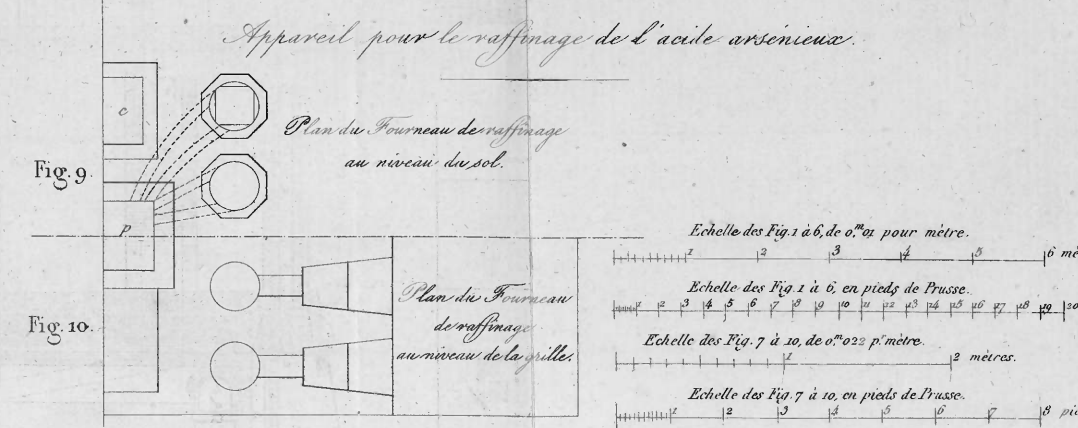 Appareil pour le raffinage de l'acide arsénieux.
c
Plan du Fourneau de raffinage
au niveau du sol.
Fig. 9.
p
Plan du Fourneau
de raffinage
au niveau de la grille.
Fig. 10.
Echelle des Fig. 1 à 6, de 0,m01 pour mètre.
1 2 3 4 5 6 mè
Echelle des Fig. 1 à 6, en pieds de Prusse.
1 2 3 4 5 6 7 8 9 10 11 12 13 14 15 16 17 18 19 20
Echelle des Fig. 7 à 10, de 0m022 pr mètre.
1 2 mètres.
Echelle des Fig. 7 à 10, en pieds de Prusse.
1 2 3 4 5 6 7 8 pie